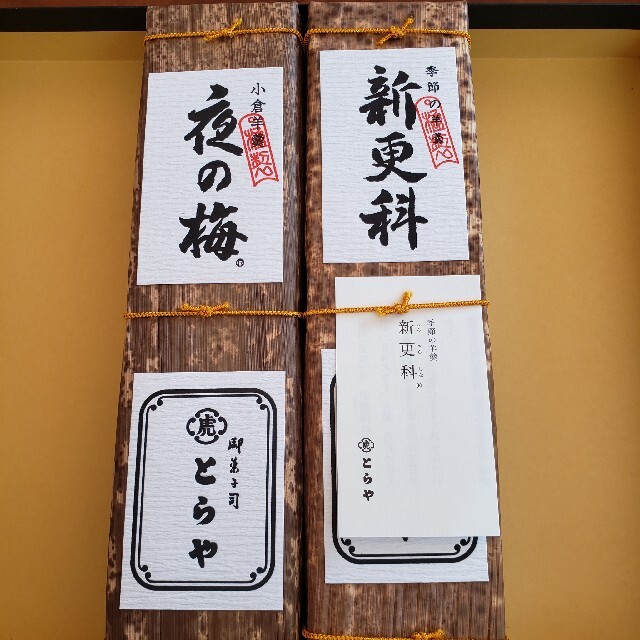 小倉羊羹
夜の梅
虎
御菓子司
とらや
季節の羊羹
新更科
季節の羊羹
新更科
虎
とらや